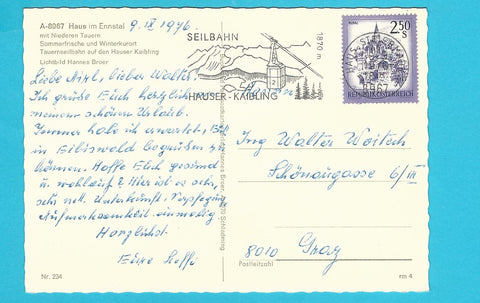 A-8967 Haus im Ennstal
mit Niederen Tauern
Sommerfrische und Winterkurort
Tauernseilbahn auf den Hauser Kaibling
Lichtbild Hannes Broer
9. IX 1976.
Liebe , lieber Walter!
Ich grüße Euch herzlichst
meinem schönen Urlaub.
Immer habe ich erwartet, Euch
in begrüßen zu
können. Hoffe Euch gesund
u. wohlauf! Hier ist es sehr,
sehr nett. Unterkunft, Verpflegung
Aufmerksamkeit einmalig
Herzlichst
Eure Steffi
Nr. 234
SEILBAHN
1870 m
HAUSER-KAIBLING
2.50
S
REPUBLIK ÖSTERREICH
8967
Ing Walter Woitsch
Schönaugasse 6/III
8010 Graz
Postleitzahl
rm 4